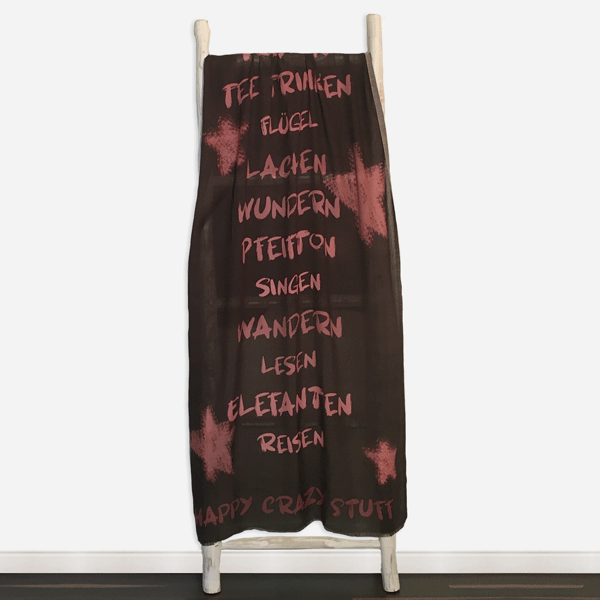 TEE TRINKEN
FLÜGEL
LACHEN
WUNDERN
PFEIFFON
SINGEN
WANDERN
LESEN
ELEFANTEN
REISEN
HAPPY CRAZY STUFF